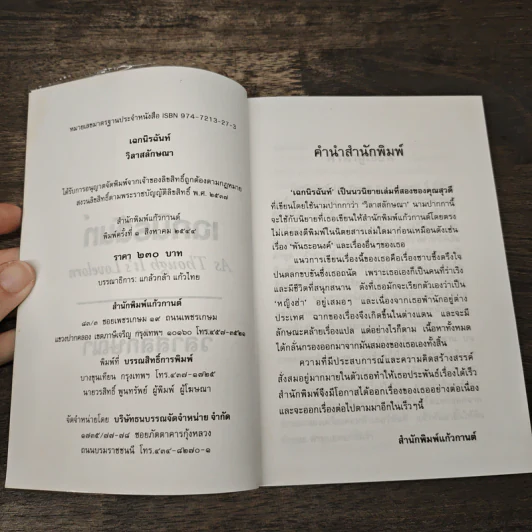 หมายเลขมาตรฐานประจำหนังสือ ISBN 974-7213-27-3
เฉกนิรฉันท์
วิลาสลักษณา
ได้รับการอนุญาตจัดพิมพ์จากเจ้าของลิขสิทธิ์ถูกต้องตามกฎหมาย
สงวนลิขสิทธิ์ตามพระราชบัญญัติลิขสิทธิ์ พ.ศ. ๒๕๓๗
สำนักพิมพ์แก้วกานต์
พิมพ์ครั้งที่ ๑ สิงหาคม ๒๕๔๔
ราคา ๒๓๐ บาท
บรรณาธิการ: แกล้วกล้า แก้วไทย
สำนักพิมพ์แก้วกานต์
๘๓/๑ ซอยเพชรเกษม ๑๙ ถนนเพชรเกษม
แขวงปากคลอง เขตภาษีเจริญ กรุงเทพฯ ๑๐๑๖๐
พิมพ์ที่ บรรณสิทธิ์การพิมพ์
บางขุนเทียน กรุงเทพฯ โทร.
นายวรสิทธิ์ พูนทรัพย์ ผู้พิมพ์ ผู้โฆษณา
จัดจำหน่ายโดย บริษัทธนบรรณจัดจำหน่าย จำกัด
๑๗๓๕/๗๗-๗๘ ซอยภัตตาคารกุ้งหลวง
ถนนบรมราชชนนี โทร.๔๓๔-๘๒๗๐-๑
คำนำสำนักพิมพ์
'เฉกนิรฉันท์' เป็นนวนิยายเล่มที่สองของคุณสุวดี
ที่เขียนโดยใช้นามปากกาว่า 'วิลาสลักษณา' นามปากกานี้
จะใช้กับนิยายที่เธอเขียนให้สำนักพิมพ์แก้วกานต์โดยตรง
ไม่เคยลงตีพิมพ์ในนิตยสารเล่มใดมาก่อนเหมือนดังเช่น
เรื่อง 'พันธะอนงค์' และเรื่องอื่นๆของเธอ
แนวการเขียนเรื่องนี้ของเธอคือเรื่องซาบซึ้งตรึงใจ
ปนตลกขบขันซึ่งเธอถนัด เพราะเธอเองก็เป็นคนที่ร่าเริง
และมีชีวิตที่สนุกสนาน ดังที่เธอมักจะเรียกตัวเองว่าเป็น
'หญิงฮา' อยู่เสมอๆ และเนื่องจากเธอพำนักอยู่ต่าง
ประเทศ ฉากของเรื่องจึงเกิดขึ้นในต่างแดน และจะมี
ลักษณะคล้ายเรื่องแปล แต่อย่างไรก็ตาม เนื้อหาทั้งหมด
ได้กลั่นกรองออกมาจากมันสมองของเธอเองทั้งสิ้น
ความที่มีประสบการณ์และความคิดสร้างสรรค์
สั่งสมอยู่มากมายในตัวเธอทำให้เธอประพันธ์เรื่องได้เร็ว
สำนักพิมพ์จึงมีโอกาสได้ออกเรื่องของเธออย่างต่อเนื่อง
และจะออกเรื่องต่อไปตามมาอีกในเร็วๆนี้
สำนักพิมพ์แก้วกานต์